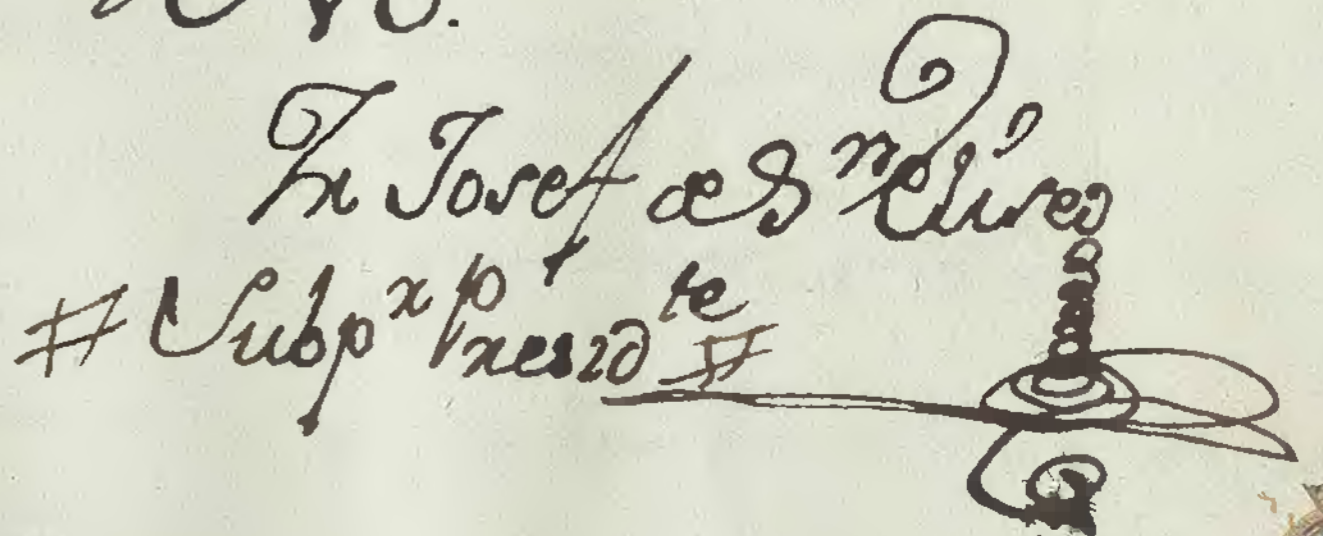 Fr Josef de Sn Eliseo
# Subpr Preside te #